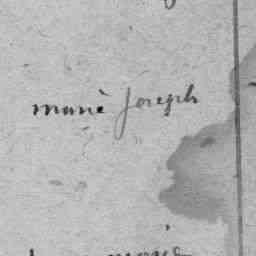 marie joseph